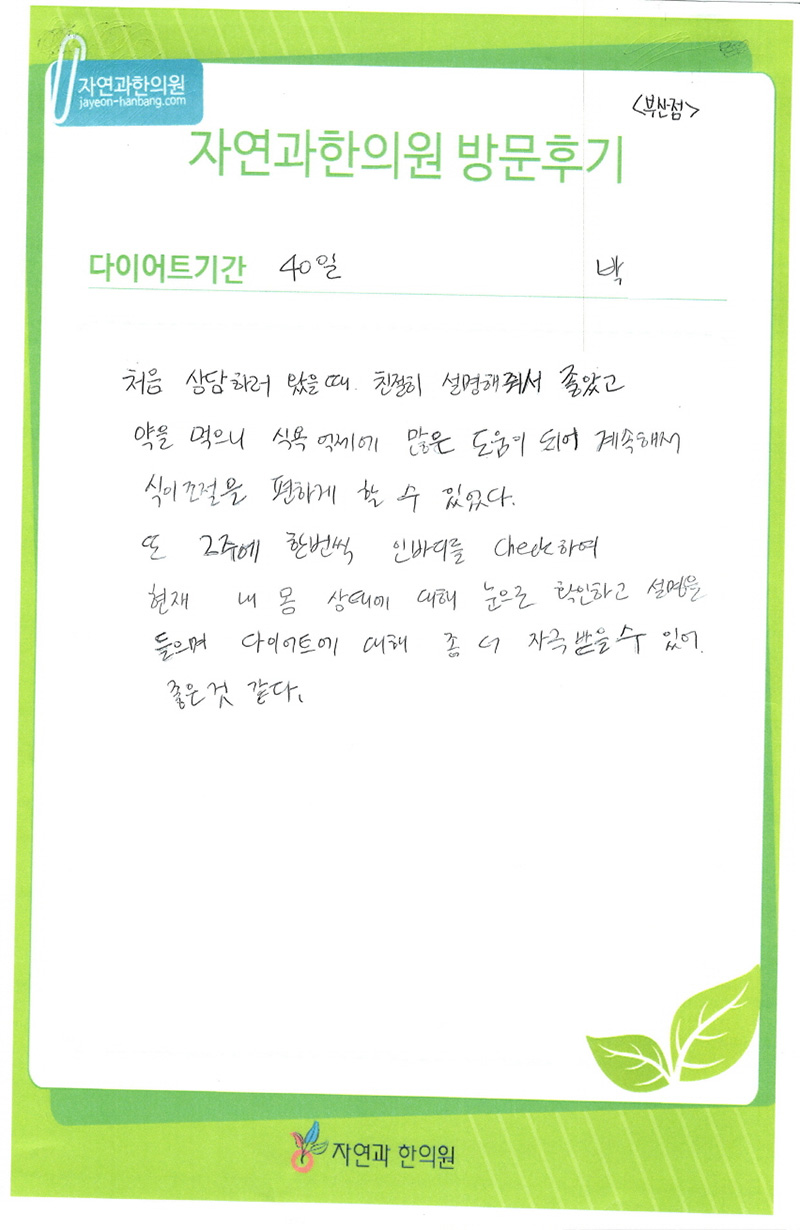 자연과한의원
jayeon-hanbang.com
<부산점>
자연과한의원 방문후기
다이어트기간 40일 박
처음 상담하러 왔을때. 친절히 설명해줘서 좋았고
약을 먹으니 식욕 억제에 많은 도움이 되어 계속해서
식이조절을 편하게 할 수 있었다.
또 2주에 한번씩 인바디를 check하여
현재 내 몸 상태에 대해 눈으로 확인하고 설명을
들으며 다이어트에 대해 좀 더 자극받을 수 있어.
좋은것 같다.
자연과 한의원